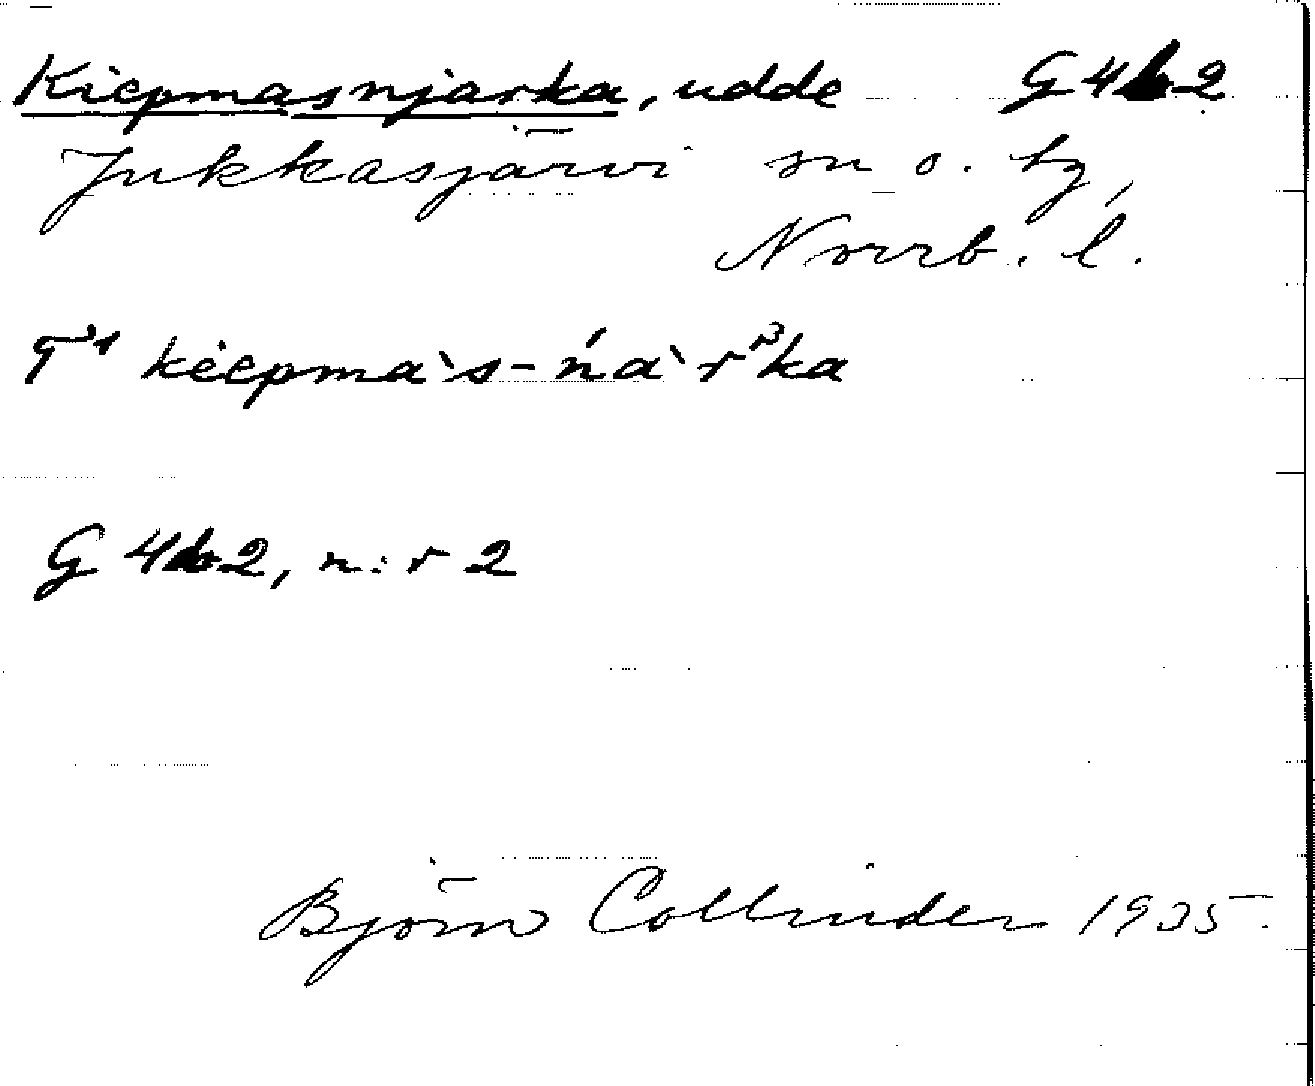 Kiepmasnjarka, udde G4b2
Jukkasjärvi sn o. tg,
Norrb. l.
kėepmàs-ńàrka
G 4b2, n:r 2
Björn Collinder 1935.